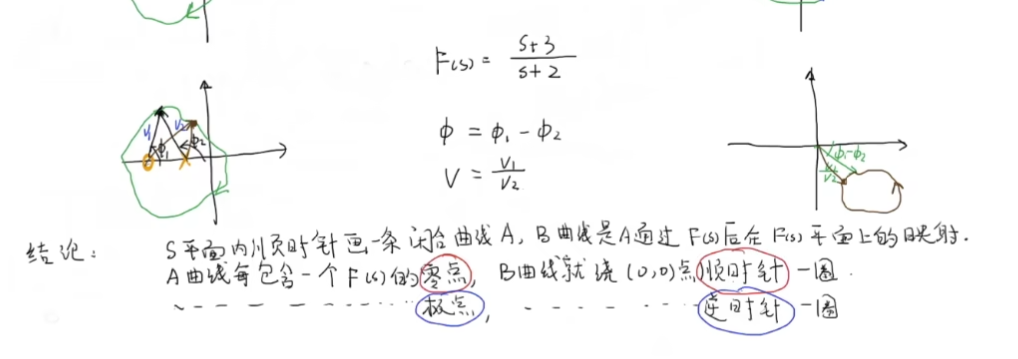 F(s) = \frac{s+3}{s+2}
ϕ = ϕ₁ - ϕ₂
V = \frac{V₁}{V₂}
V₁ V₂ ϕ₁ ϕ₂
ϕ₁-ϕ₂
\frac{V₁}{V₂}
结论: S平面内顺时针画一条闭合曲线A, B曲线是A通过F(s)后在F(s)平面上的映射.
A曲线每包含一个F(s)的零点, B曲线就绕(0,0)点顺时针一圈.
极点, 逆时针一圈